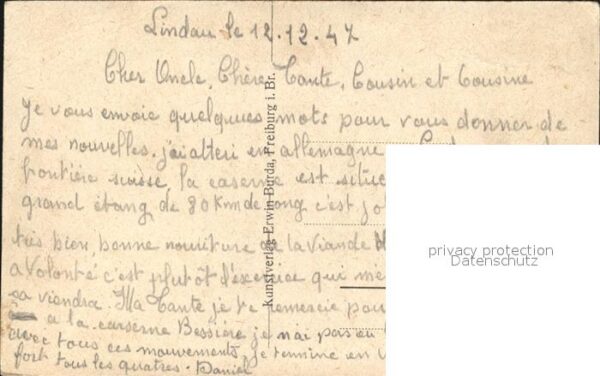 Lindau le 12.12.47
Cher Oncle, Chère Tante, Cousin et Cousine
Je vous envoie quelques mots pour vous donner de
mes nouvelles. j'ai atteri en allemagne
frontière suisse, la caserne est situé
grand étang de 80 Km de long c'est
très bien, bonne nouriture de la Viande
a Volonté c'est plutôt d'exercice qui me
sa viendra. Ma Tante je te remercie pour
a la caserne Bessière je n'ai pas eu
avec tous ces mouvements, je termine en
fort tous les quatres. Daniel
Kunstverlag Erwin Burda, Freiburg i. Br.
privacy protection
Datenschutz